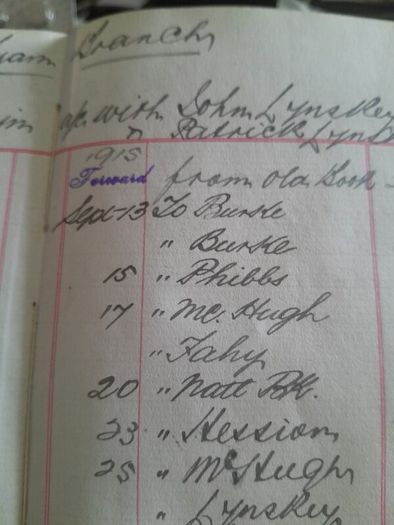 am Branch
im a/c with John Lynskey
" Patrick Lynsk
1915
Forward from Old Book -
Sept-13 To Burke
" Burke
15 " Phibbs
17 " Mc. Hugh
" Fahy
20 " Natl Bk.
23 " Hession
25 " McHugh
" Lynskey